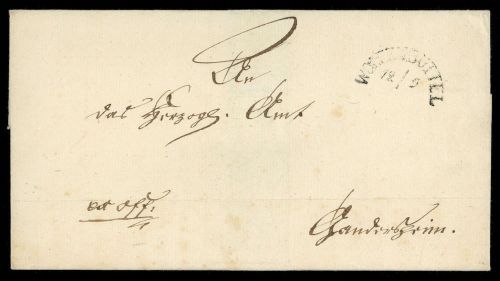 An
WOLFENBÜTTEL
12/9
das Herzogl. Amt
ex off.
Gandersheim.